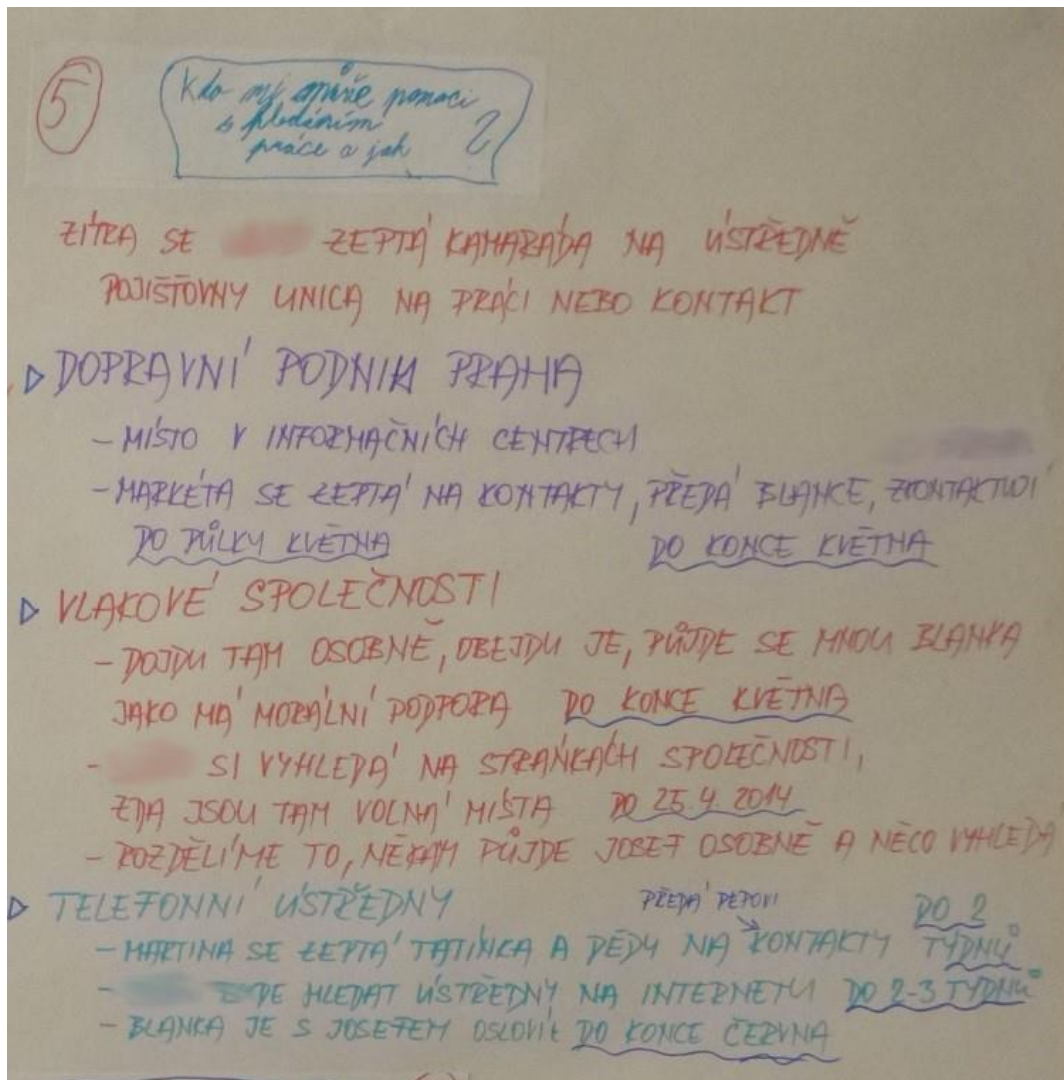 5
Kdo mi může pomoci
s hledáním
práce a jak ?
ZÍTRA SE ZEPTÁ KAMARÁDA NA ÚSTŘEDNĚ
POJIŠŤOVNY UNICA NA PRÁCI NEBO KONTAKT
DOPRAVNÍ PODNIK PRAHA
- MÍSTO V INFORMAČNÍCH CENTRECH
- MARKÉTA SE ZEPTÁ NA KONTAKTY, PŘEDÁ BLANCE, ZKONTAKTUJÍ
DO PŮLKY KVĚTNA DO KONCE KVĚTNA
VLAKOVÉ SPOLEČNOSTI
- DOJDU TAM OSOBNĚ, OBEJDU JE, PŮJDE SE MNOU BLANKA
JAKO MÁ MORÁLNÍ PODPORA DO KONCE KVĚTNA
- SI VYHLEDÁ NA STRÁNKÁCH SPOLEČNOSTI,
ZDA JSOU TAM VOLNÁ MÍSTA DO 25.4. 2014
- ROZDĚLÍME TO, NĚKAM PŮJDE JOSEF OSOBNĚ A NĚCO VYHLEDÁ
TELEFONNÍ ÚSTŘEDNY PŘEDÁ PEPOVI DO 2
- MARTINA SE ZEPTÁ TATÍNKA A DĚDY NA KONTAKTY TÝDNŮ
- HLEDAT ÚSTŘEDNY NA INTERNETU DO 2-3 TÝDNŮ
- BLANKA JE S JOSEFEM OSLOVÍ DO KONCE ČERVNA